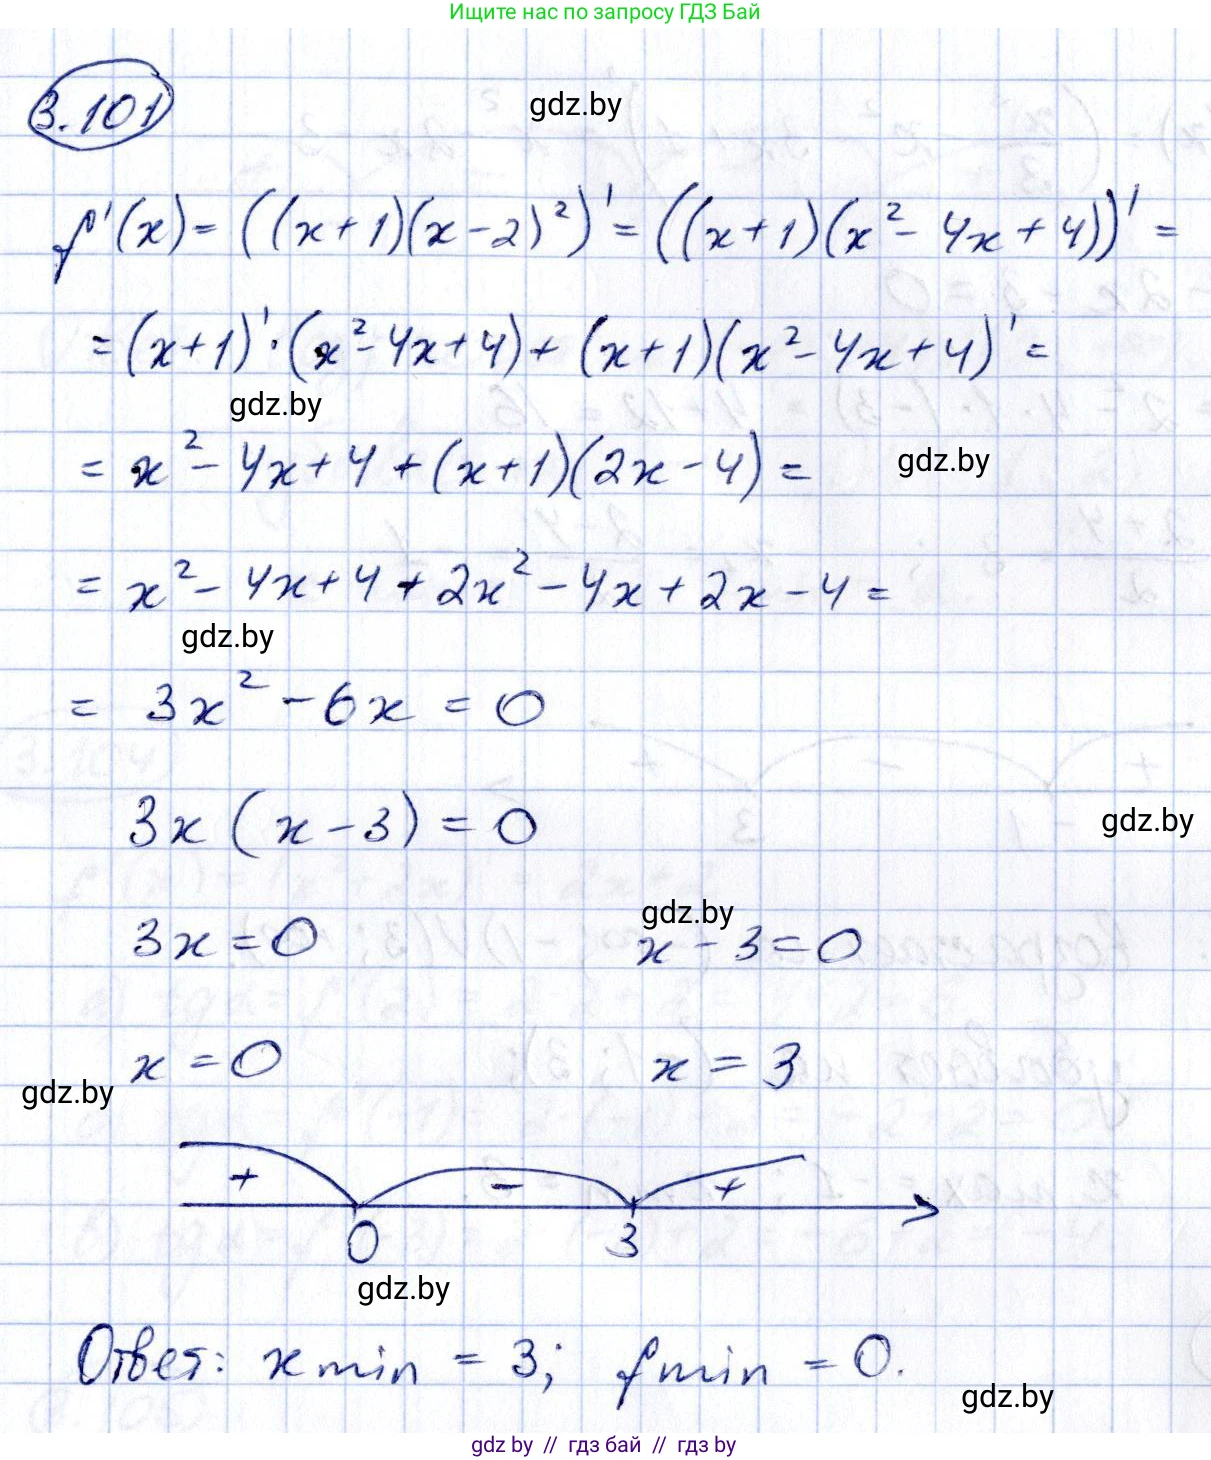 Ищите нас по запросу ГДЗ Бай
3.101
gdz.by
f'(x) = ((x+1)(x-2)²)' = ((x+1)(x² - 4x + 4))' =
= (x+1)' · (x² - 4x + 4) + (x+1)(x² - 4x + 4)' =
gdz.by
= x² - 4x + 4 + (x+1)(2x - 4) =
gdz.by
= x² - 4x + 4 + 2x² - 4x + 2x - 4 =
gdz.by
= 3x² - 6x = 0
3x (x - 3) = 0
gdz.by
3x = 0 x - 3 = 0
gdz.by
x = 0 x = 3
gdz.by
+ - +
0 3
gdz.by
Ответ: x min = 3; f min = 0.
gdz.by
gdz by // гдз бай // gdz by